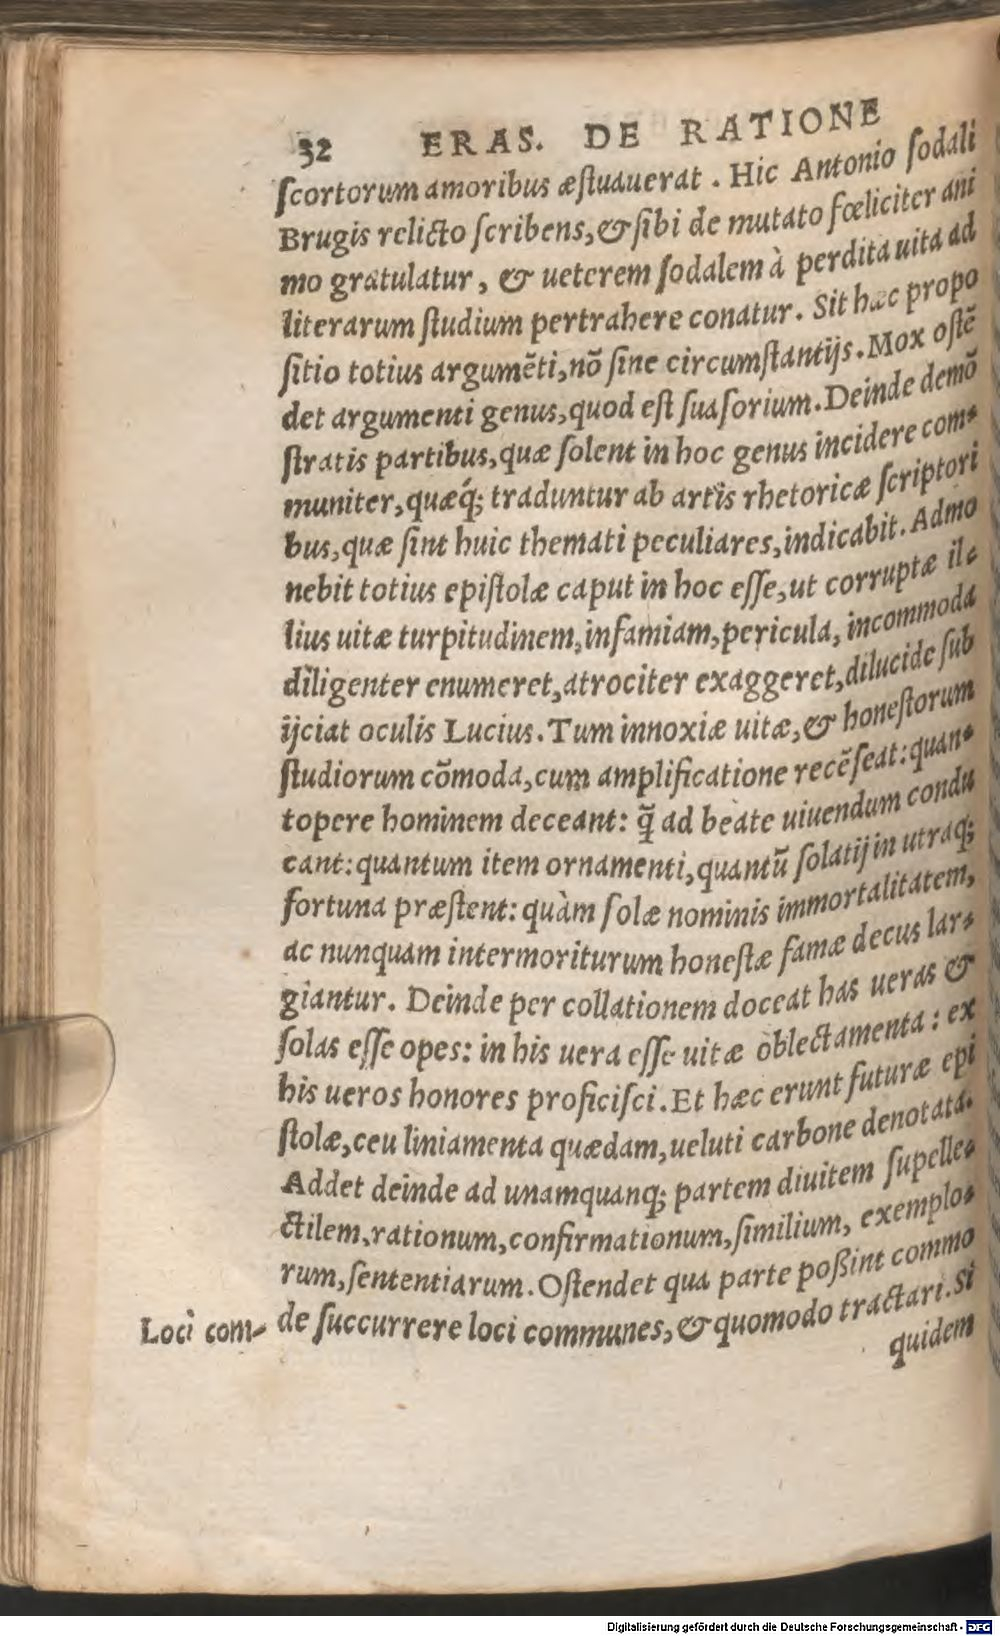 32 ERAS. DE RATIONE
ſcortorum amoribus æſtuauerat. Hic Antonio ſodali
Brugis relicto ſcribens, & ſibi de mutato fœliciter ani
mo gratulatur, & ueterem ſodalem à perdita uita ad
literarum ſtudium pertrahere conatur. Sit hæc propo
ſitio totius argumẽti, nõ ſine circumſtantijs. Mox oſtẽ
det argumenti genus, quod eſt ſuaſorium. Deinde demõ
ſtratis partibus, quæ ſolent in hoc genus incidere com-
muniter, quæq́; traduntur ab artis rhetoricæ ſcriptori
bus, quæ ſint huic themati peculiares, indicabit. Admo
nebit totius epiſtolæ caput in hoc eſſe, ut corruptæ il-
lius uitæ turpitudinem, infamiam, pericula, incommoda
diligenter enumeret, atrociter exaggeret, dilucide ſub
ijciat oculis Lucius. Tum innoxiæ uitæ, & honeſtorum
ſtudiorum cõmoda, cum amplificatione recẽſeat: quan-
topere hominem deceant: q̃ ad beate uiuendum condu
cant: quantum item ornamenti, quantũ ſolatij in utraq;
fortuna præſtent: quàm ſolæ nominis immortalitatem,
ac nunquam intermoriturum honeſtæ famæ decus lar-
giantur. Deinde per collationem doceat has ueras &
ſolas eſſe opes: in his uera eſſe uitæ oblectamenta: ex
his ueros honores proficiſci. Et hæc erunt futuræ epi
ſtolæ, ceu liniamenta quædam, ueluti carbone denotata.
Addet deinde ad unamquanq; partem diuitem ſupelle-
ctilem, rationum, confirmationum, ſimilium, exemplo-
rum, ſententiarum. Oſtendet qua parte poßint commo
Loci com- de ſuccurrere loci communes, & quomodo tractari. Si
quidem
Digitalisierung gefördert durch die Deutsche Forschungsgemeinschaft - DFG